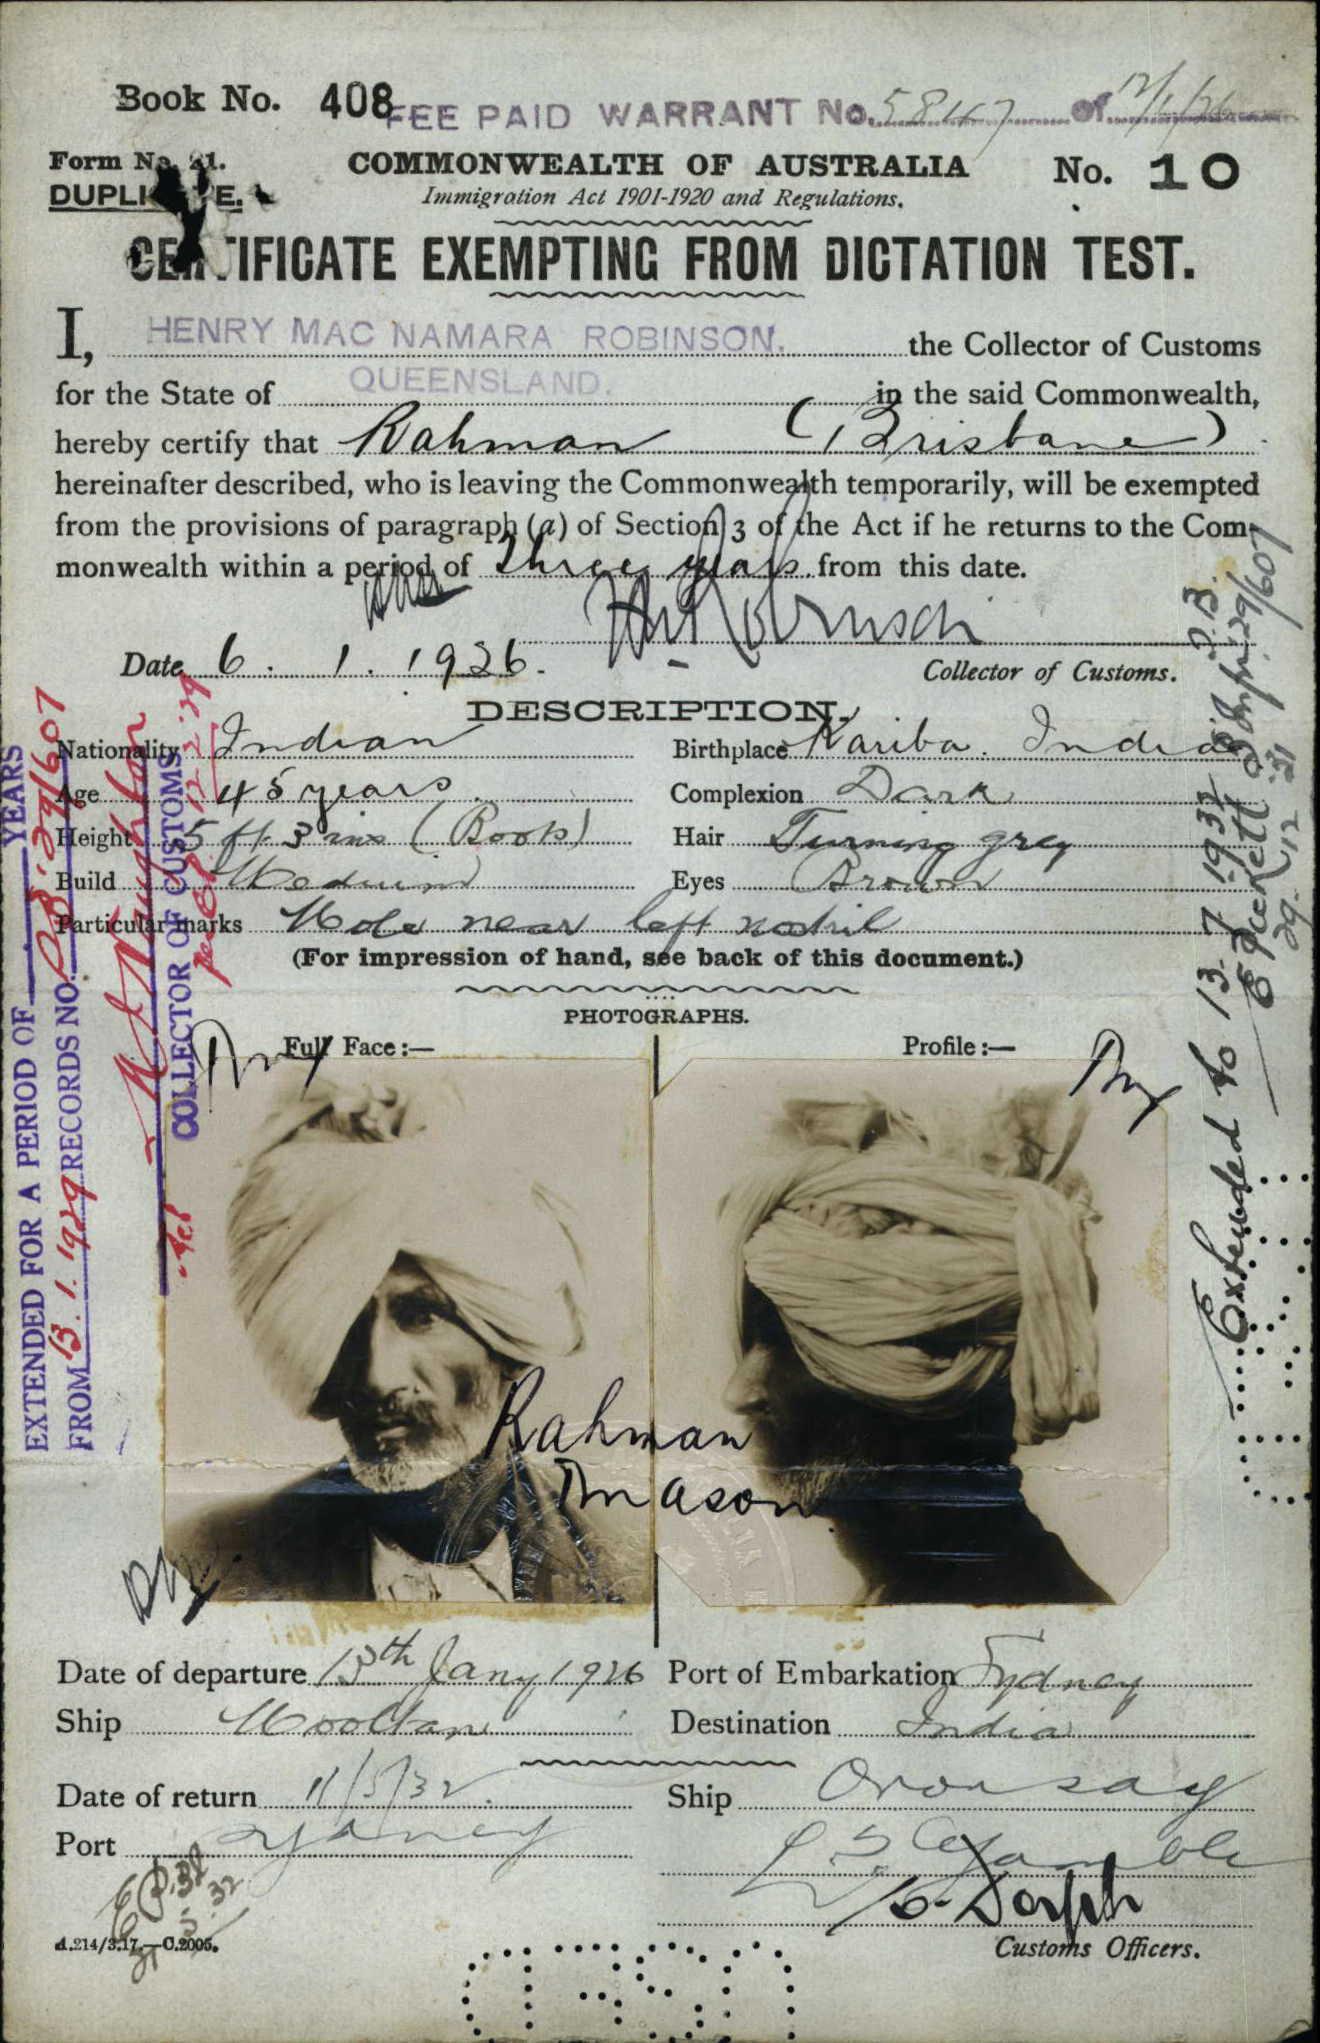 Book No. 408 FEE PAID WARRANT No. 5847 of 12/1/26
Form No. 21. COMMONWEALTH OF AUSTRALIA No. 10
DUPLICATE. Immigration Act 1901-1920 and Regulations.
CERTIFICATE EXEMPTING FROM DICTATION TEST.
I, HENRY MAC NAMARA ROBINSON. the Collector of Customs
for the State of QUEENSLAND. in the said Commonwealth,
hereby certify that Rahman (Brisbane)
hereinafter described, who is leaving the Commonwealth temporarily, will be exempted
from the provisions of paragraph (a) of Section 3 of the Act if he returns to the Com-
monwealth within a period of three years from this date.
Date 6. 1. 1926.
Collector of Customs.
DESCRIPTION.
Nationality Indian Birthplace Kariba. India
Age 45 years. Complexion Dark
Height 5 ft 3 ins (Boots) Hair Turning grey
Build Medium Eyes Brown
Particular marks Mole near left nostril
(For impression of hand, see back of this document.)
PHOTOGRAPHS.
Full Face:— Profile:—
Rahman
Mason
Date of departure 13th Jany 1926 Port of Embarkation Sydney
Ship Mooltan Destination India
Date of return 11/5/32. Ship Oronsay
Port Sydney
Customs Officers.
A.214/3.17.—C.2005.
EXTENDED FOR A PERIOD OF YEARS
FROM 13. 1. 1929 RECORDS NO. 29/607
COLLECTOR OF CUSTOMS
12.2.29
Extended to 13. 7. 1932
29/607
29.12.31